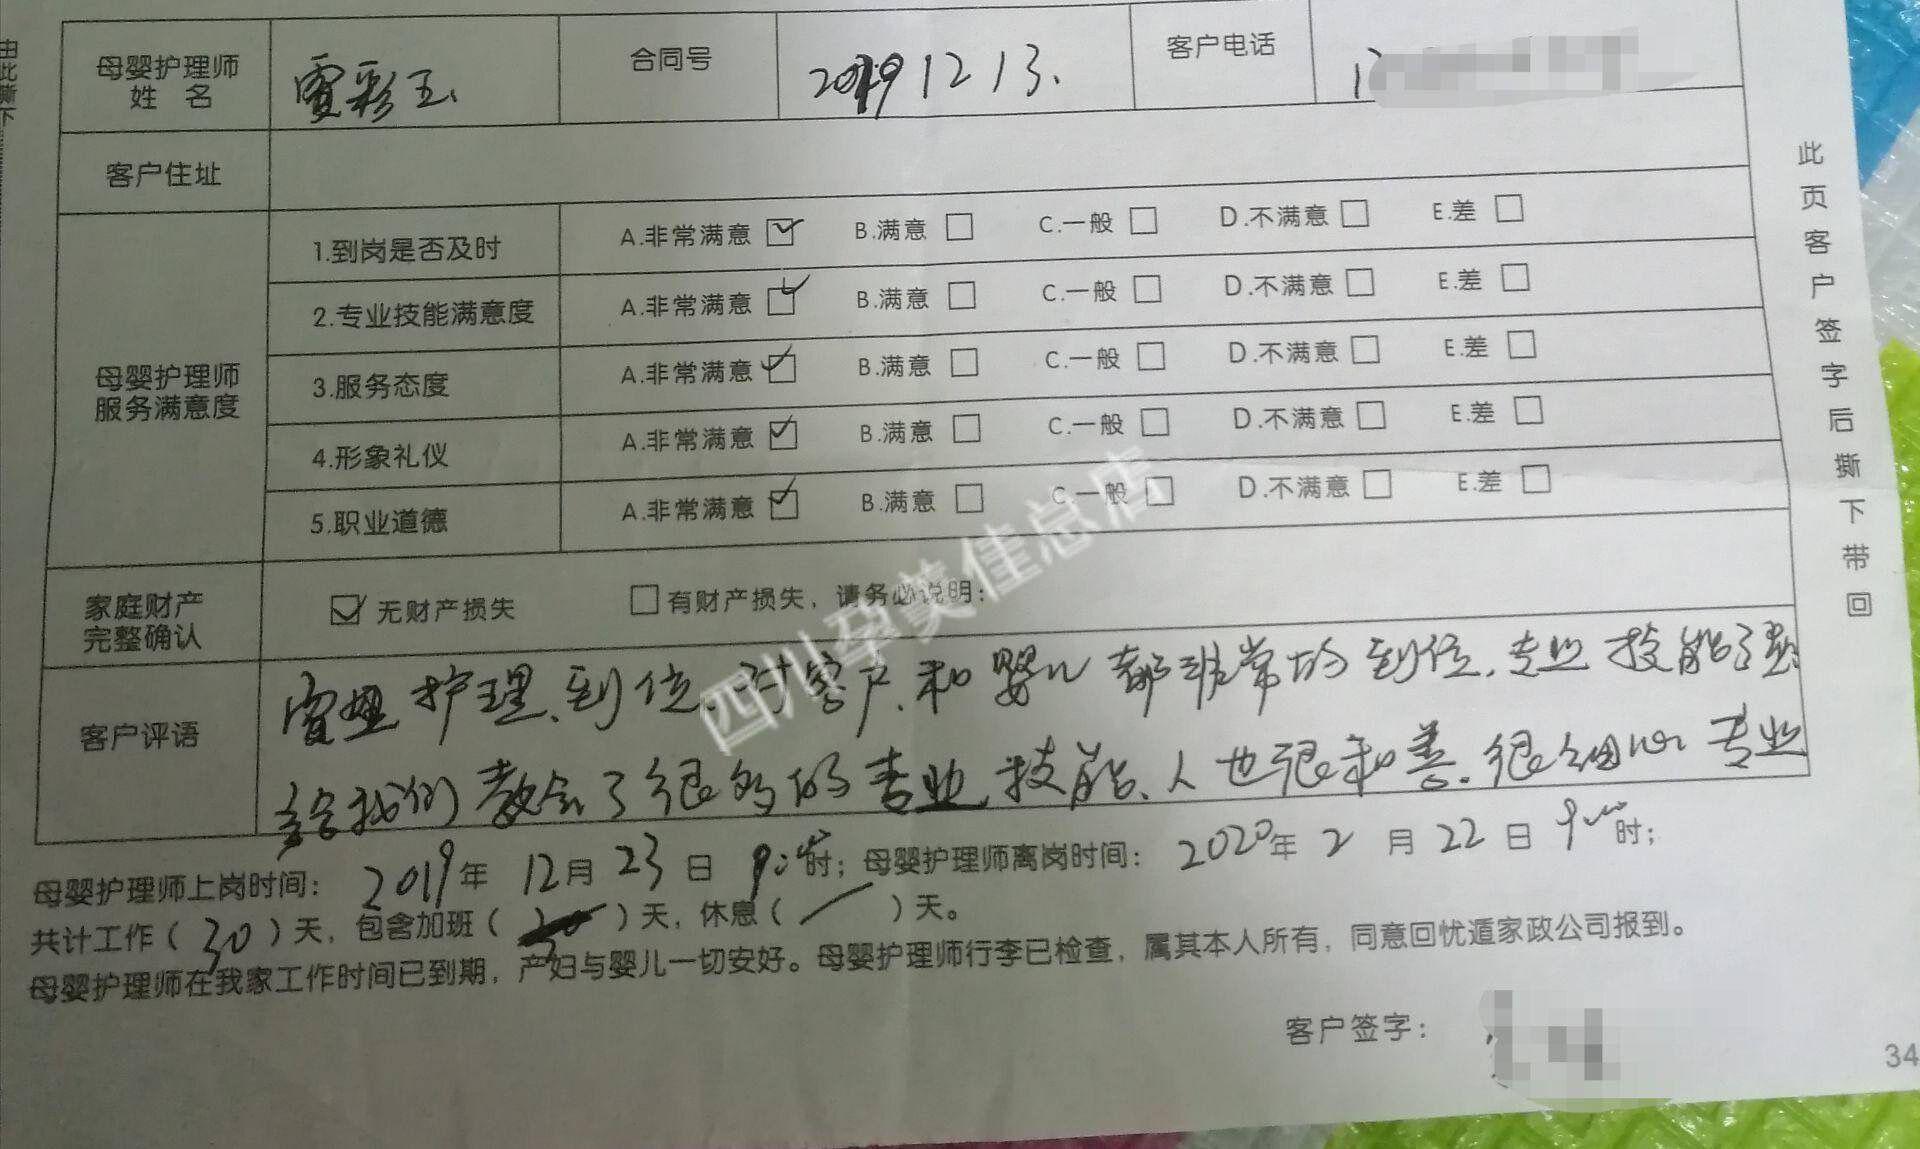 由此撕下
母婴护理师姓名 彩玉 合同号 20191213. 客户电话
客户住址
母婴护理师服务满意度
1.到岗是否及时 A.非常满意 ☑ B.满意 □ C.一般 □ D.不满意 □ E.差 □
2.专业技能满意度 A.非常满意 ☑ B.满意 □ C.一般 □ D.不满意 □ E.差 □
3.服务态度 A.非常满意 ☑ B.满意 □ C.一般 □ D.不满意 □ E.差 □
4.形象礼仪 A.非常满意 ☑ B.满意 □ C.一般 □ D.不满意 □ E.差 □
5.职业道德 A.非常满意 ☑ B.满意 □ C.一般 □ D.不满意 □ E.差 □
家庭财产完整确认 ☑ 无财产损失 □ 有财产损失，请务必说明：
客户评语 护理、到位、对客户、和婴儿都非常的到位，专业技能
给我们教会了很多的专业技能、人也很和善．很细心 专业
母婴护理师上岗时间： 2019年 12月 23日 9:00时；母婴护理师离岗时间： 2020年 2月 22日 9:00时；
共计工作（30）天，包含加班（ ）天，休息（／）天。
母婴护理师在我家工作时间已到期，产妇与婴儿一切安好。母婴护理师行李已检查，属其本人所有，同意回忧遁家政公司报到。
客户签字：
34
此页客户签字后撕下带回
四川孕美佳总店